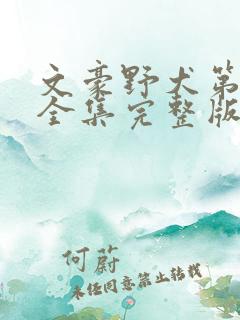 文豪野犬第
全集完整版
何蔚
未经同意禁止转载